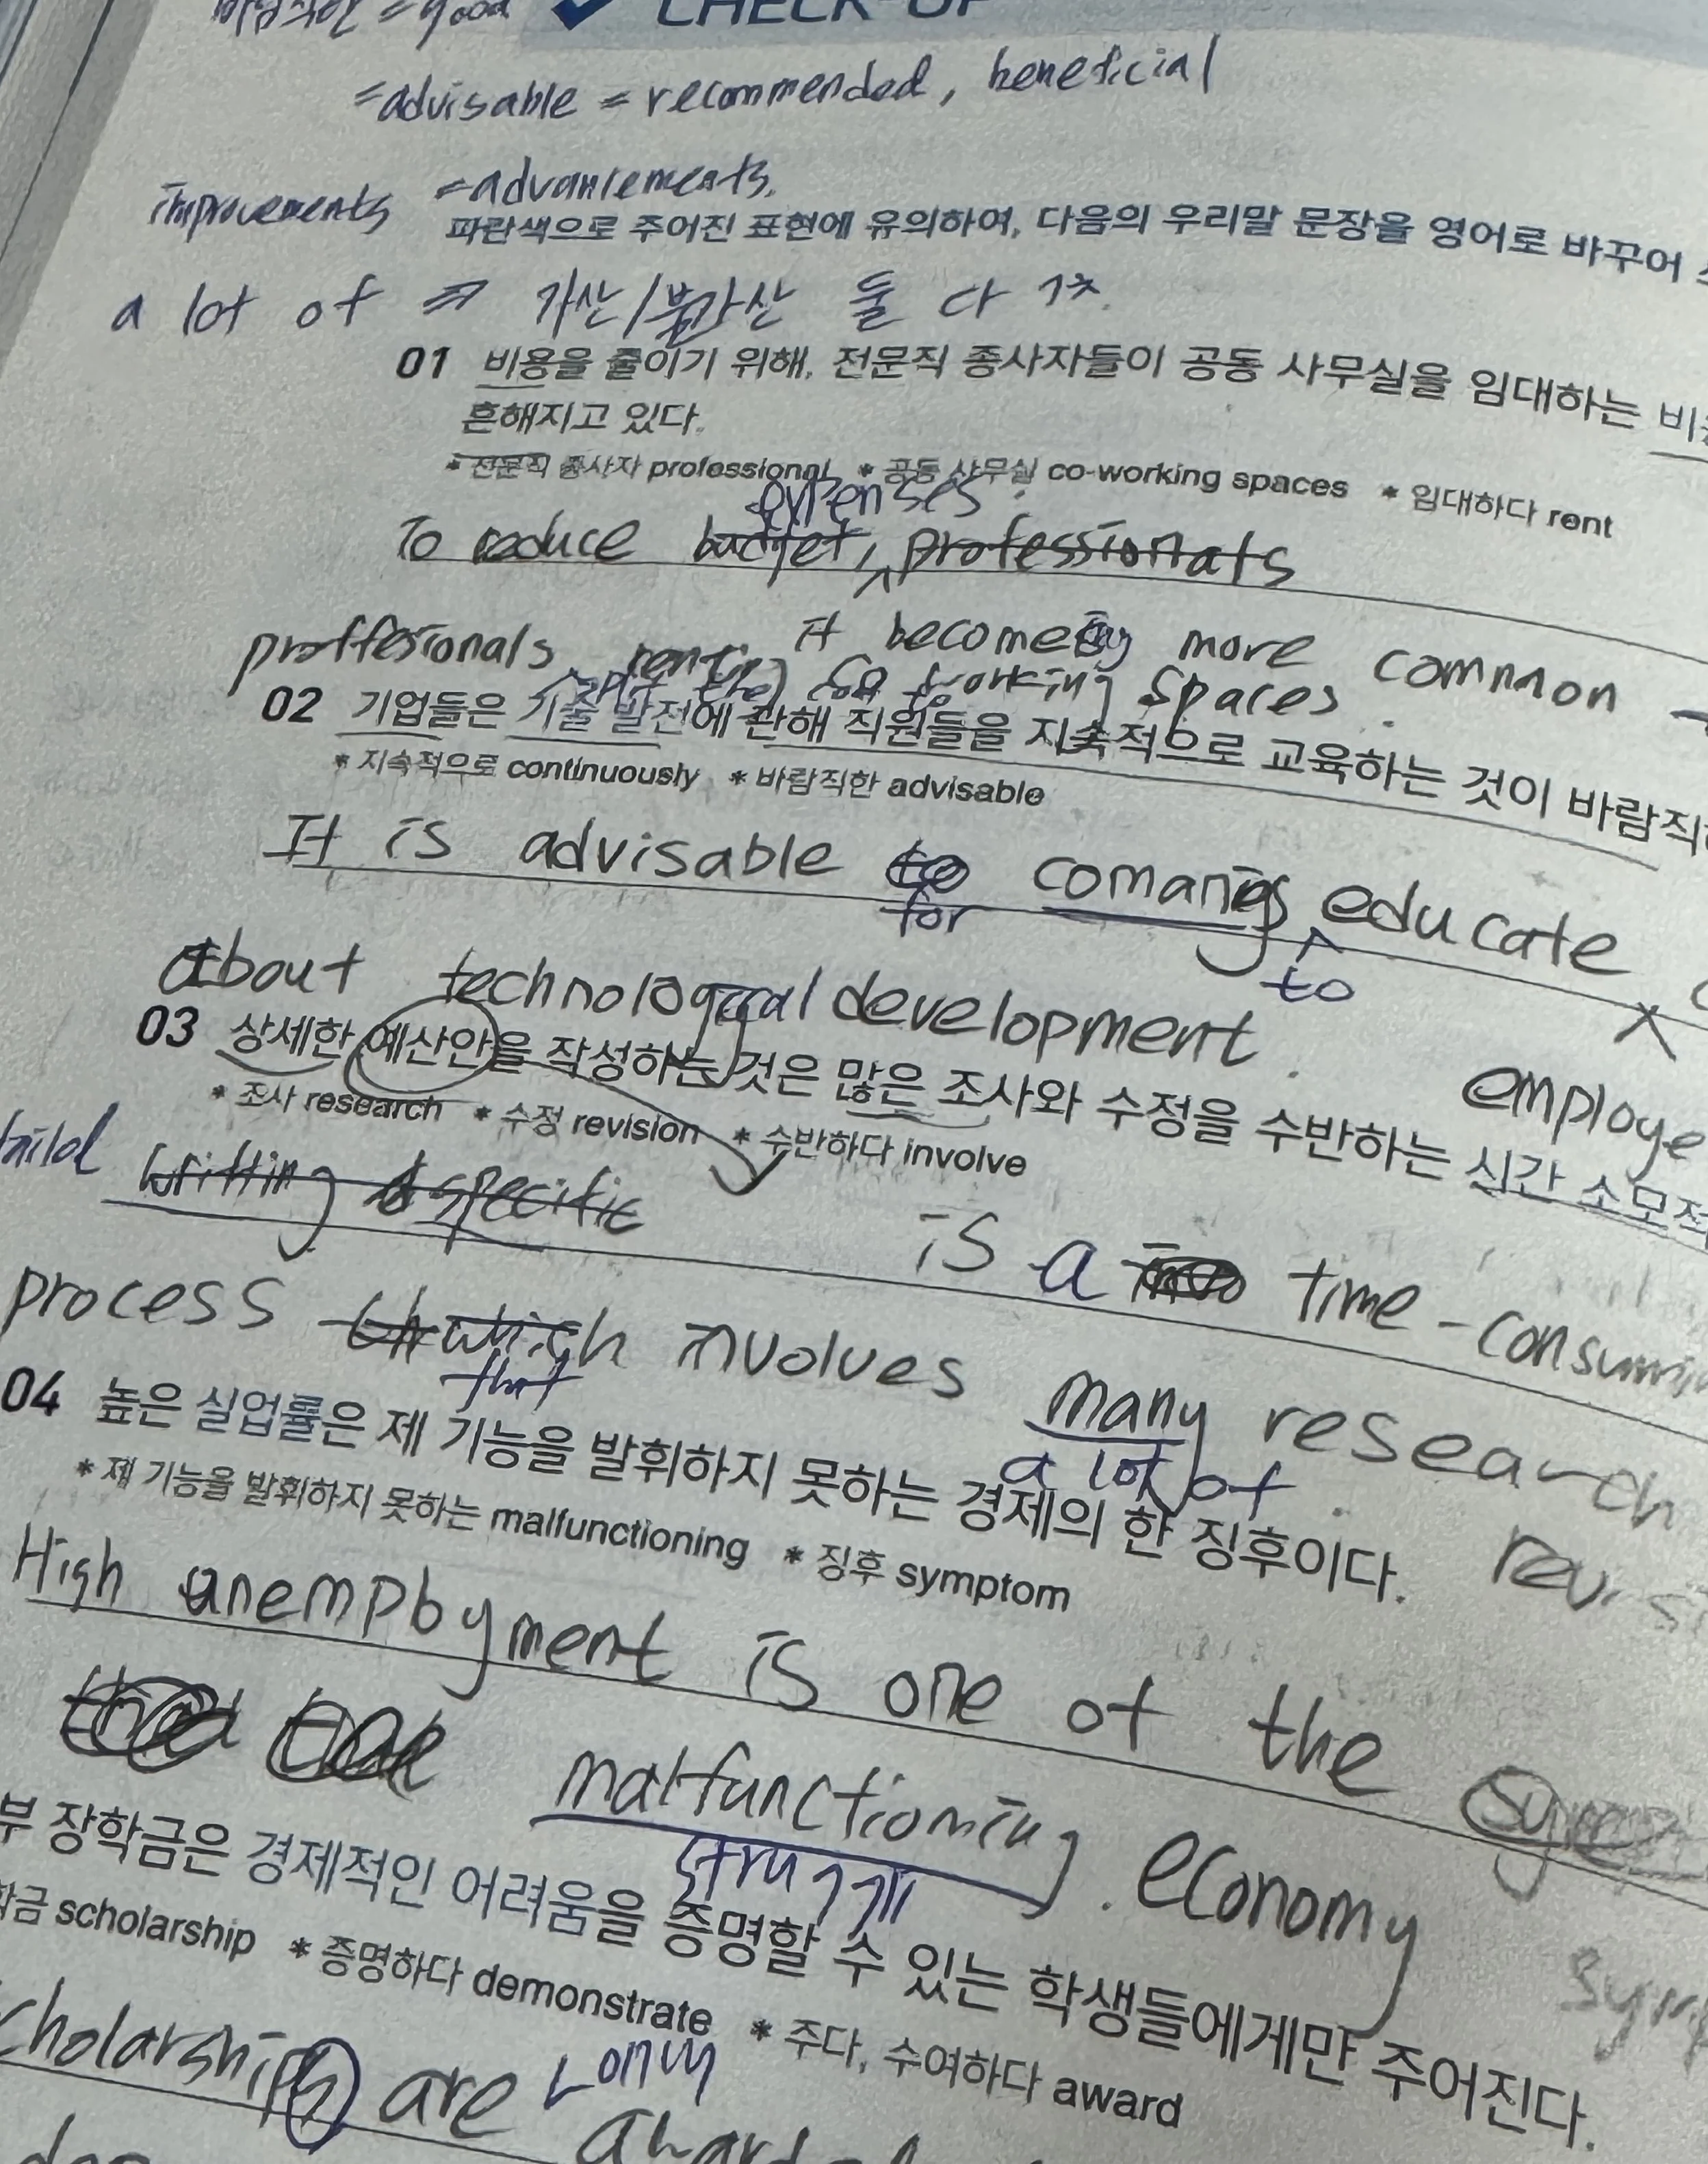 바람직한 = good
CHECK-UP
=advisable = recommended, beneficial
improvements =advancements,
파란색으로 주어진 표현에 유의하여, 다음의 우리말 문장을 영어로 바꾸어
a lot of ⇒ 가산/불가산 둘 다 가능
01 비용을 줄이기 위해, 전문직 종사자들이 공동 사무실을 임대하는
흔해지고 있다.
* 전문직 종사자 professional * 공동 사무실 co-working spaces * 임대하다 rent
expenses
To reduce budget, professionals
it becoming more common
proffesionals renting co-working spaces.
02 기업들은 기술 발전에 관해 직원들을 지속적으로 교육하는 것이
* 지속적으로 continuously * 바람직한 advisable
It is advisable to comanies educate
for to
About technological development.
employe
03 상세한 예산안을 작성하는 것은 많은 조사와 수정을 수반하는 시간
* 조사 research * 수정 revision * 수반하다 involve
writting a specific is a time-consumin
process which involves many research
that a lot of
04 높은 실업률은 제 기능을 발휘하지 못하는 경제의 한 징후이다.
* 제 기능을 발휘하지 못하는 malfunctioning * 징후 symptom
High unemployment is one of the
malfunctioning economy
부 장학금은 경제적인 어려움을 증명할 수 있는 학생들에게만 주어진다.
학금 scholarship * 증명하다 demonstrate * 주다, 수여하다 award
only
cholarships are